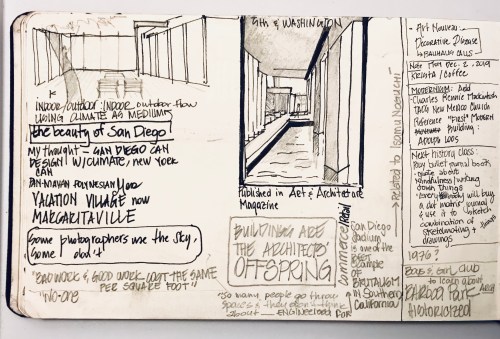 INDOOR/OUTDOOR: INDOOR, outdoor flow
USING CLIMATE AS MEDIUM
the beauty of San Diego
My thought — SAN DIEGO CAN
DESIGN W/ CLIMATE, new YORK
CAN
PAN-MAYAN POLYNESIAN
VACATION VILLAGE now
MARGARITAVILLE
Some photographers use the sky,
some don't
"BAD WORK & GOOD WORK COST THE SAME
PER SQUARE FOOT"
5th & WASHINGTON
Published in Art & Architecture
Magazine
BUILDINGS ARE
THE ARCHITECTS'
OFFSPRING
So many people go through
spaces & they don't think
about — ENGINEERED FOR
Commerce
Retail
San Diego
Stadium
is one of the
best
example
OF
BRUTALISM
IN Southern
California
Related to Isamu Noguchi
Art Nouveau:
Decorative Disease
BAUHAUS CALLS
Note Mon Dec. 2, 2019
KRISTA / Coffee
MODERNISM: Add
Charles Rennie Mackintosh
New Mexico Church
Reference "First" MODERN
Building:
ADOLPH LOOS
Next history class:
Buy bullet journal book,
quote about
Mindfulness/writing
down things
Everybody will buy
a dot matrix journal
& use it to sketch
combination of
sketchnoting &
drawings
things
1976?
Boys & Girl Club
to learn about
BALBOA PARK
Historicized